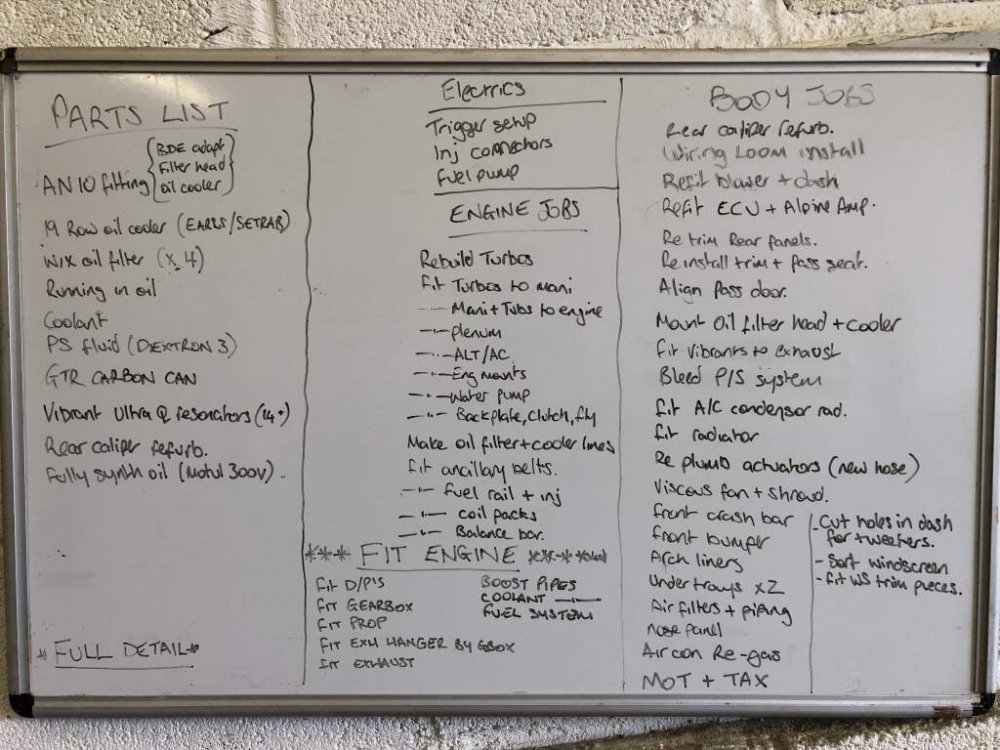 PARTS LIST
BDE adapt
AN10 fitting Filter head
Oil cooler
19 Row oil cooler (EARLS/SETRAB)
WIX oil filter (x 4)
Running in oil
Coolant
PS fluid (DEXTRON 3)
GTR CARBON CAN
Vibrant Ultra Q resonators (14")
Rear caliper refurb.
Fully synth oil (Motul 300v)
* FULL DETAIL *
Electrics
Trigger setup
Inj connectors
Fuel pump
ENGINE JOBS
Rebuild Turbos
Fit Turbos to mani
-··- Mani + Tubs to engine
-··- plenum
-··- ALT/AC
-··- Eng mounts
-··- Water pump
-··- Backplate, clutch, fly
Make oil filter + cooler lines
Fit ancillary belts.
-··- Fuel rail + inj
-··- coil packs
-··- Balance bar.
*** FIT ENGINE ***
Fit D/P'S
FIT GEARBOX
FIT PROP
FIT EXH HANGER BY GBOX
FIT EXHAUST
BOOST PIPES
COOLANT -··-
FUEL SYSTEM
BODY JOBS
Rear caliper refurb.
Wiring LOOM install
Refit blower + dash
Refit ECU + Alpine Amp.
Re trim Rear panels.
Reinstall trim + pass seat.
Align Pass door.
Mount Oil filter head + cooler
Fit vibrants to exhaust
Bleed P/S system
Fit A/C condensor rad.
Fit radiator
Re plumb actuators (new hose)
Viscous fan + shroud.
Front crash bar
Front bumper
Arch liners
Under trays x2
Air filters + piping
nose panel
Air con Re-gas
MOT + TAX
- Cut holes in dash
for tweeters.
- Sort windscreen
- Fit WS trim pieces.